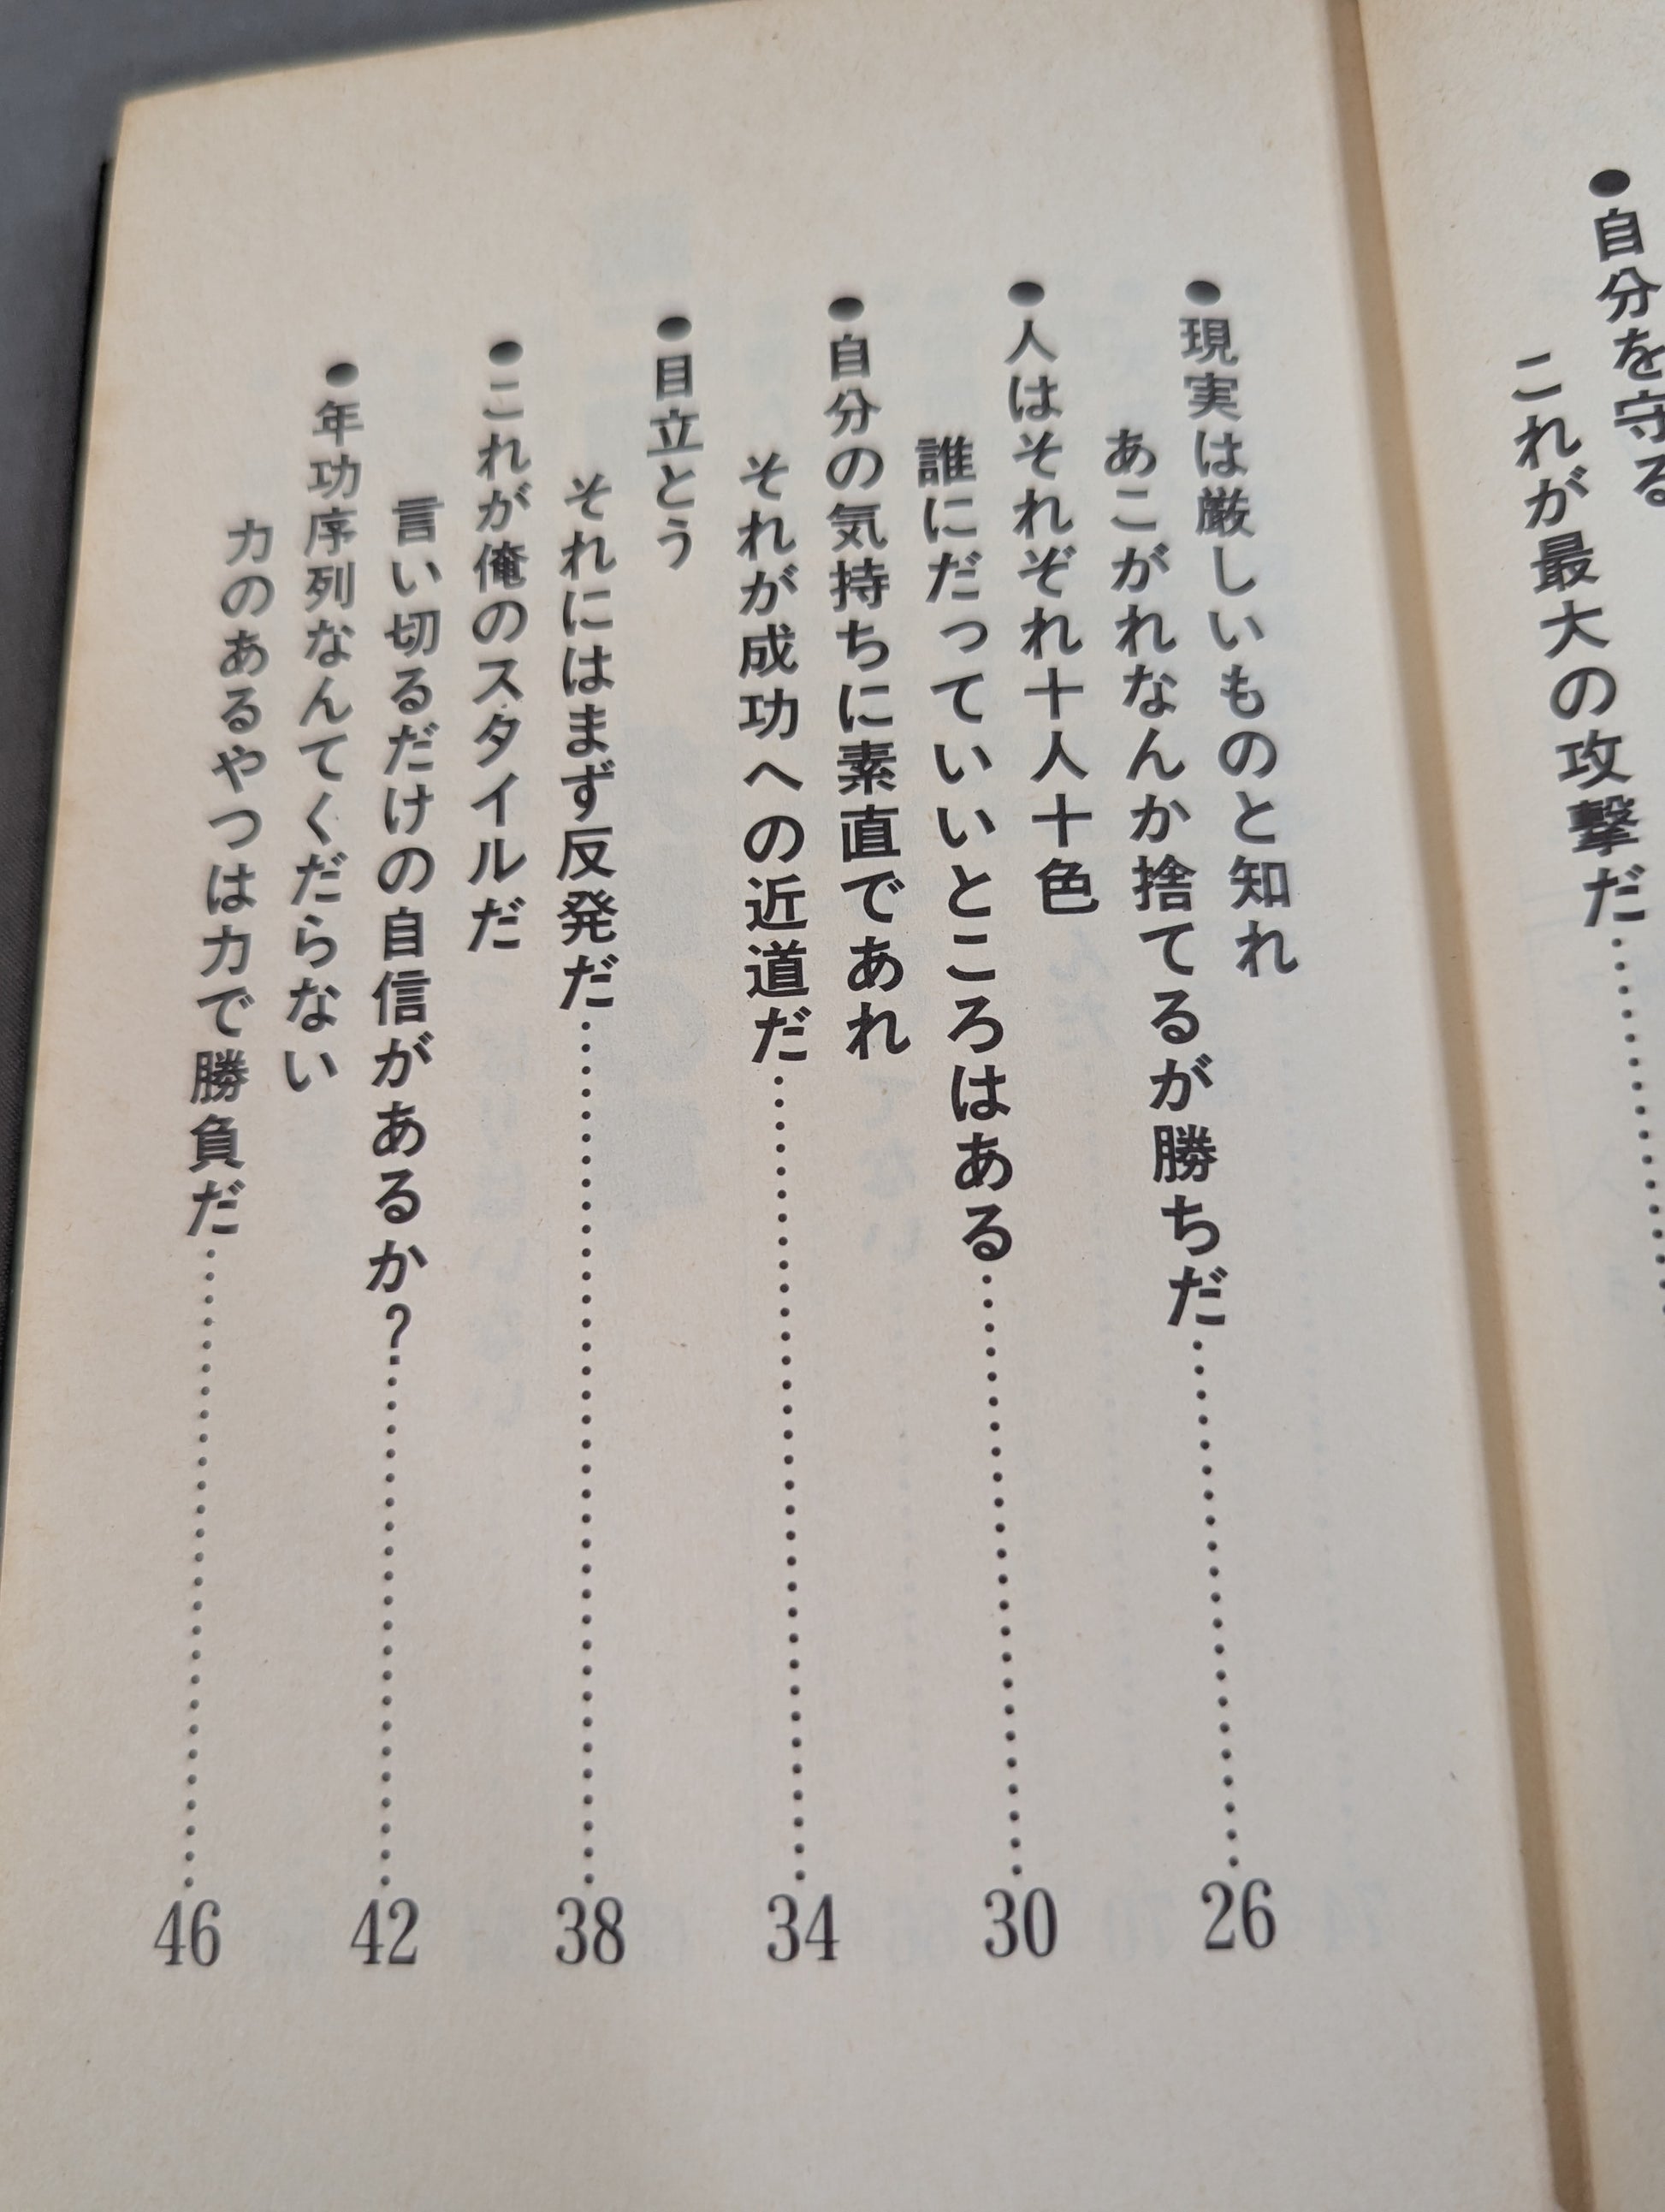 ●自分を守る
これが最大の攻撃だ
●現実は厳しいものと知れ
あこがれなんか捨てるが勝ちだ……26
●人はそれぞれ十人十色
誰にだっていいところはある……30
●自分の気持ちに素直であれ
それが成功への近道だ……34
●目立とう
それにはまず反発だ……38
●これが俺のスタイルだ
言い切るだけの自信があるか?……42
●年功序列なんてくだらない
力のあるやつは力で勝負だ……46